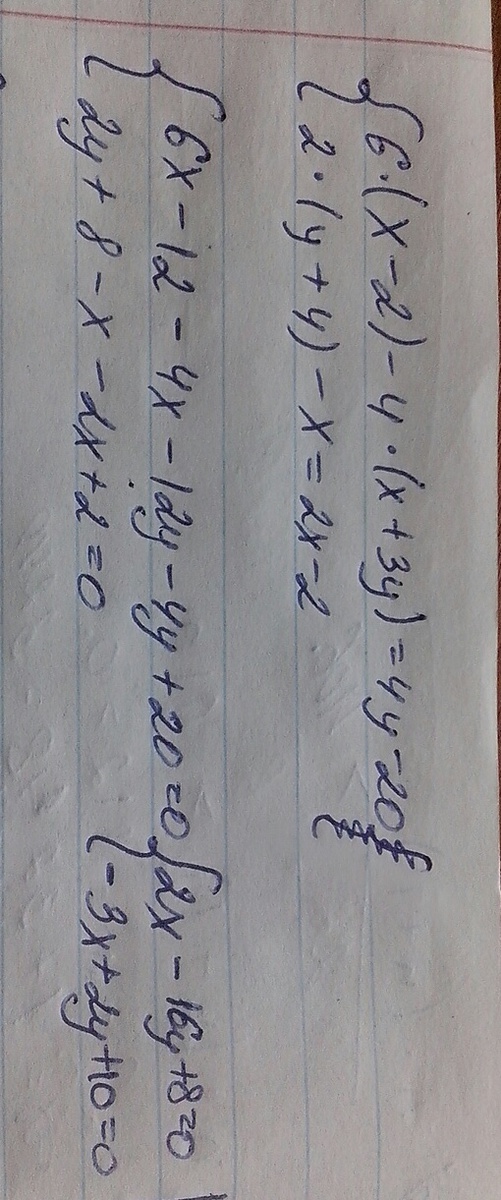 6·(x-2)-4·(x+3y)=4y-20
2·(y+4)-x=2x-2
6x-12-4x-12y-4y+20=0
2y+8-x-2x+2=0
2x-16y+8=0
-3x+2y+10=0